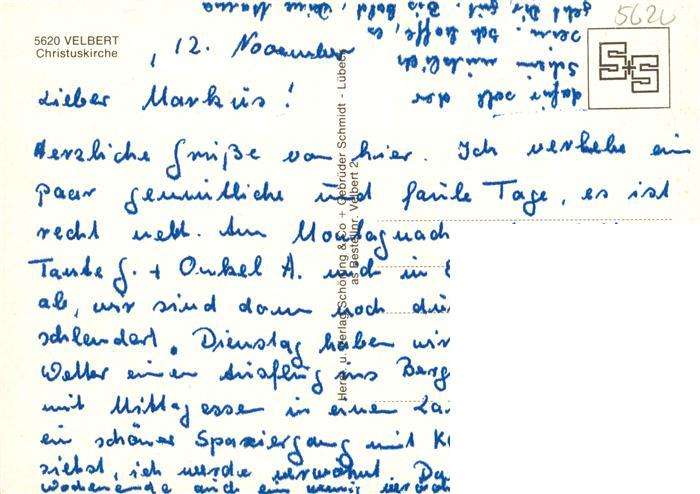 5620 VELBERT
Christuskirche
5620
12. November
Lieber Markus!
Herzliche Grüße von hier. Ich verlebe ein
paar gemütliche und faule Tage, es ist
recht nett. Am Montag nach
Tante G. + Onkel A. und in
ab, wir sind dann noch
schlendert. Dienstag haben wir
Wetter einen Ausflug ins Berg
mit Mittagessen in einem
ein schöner Spaziergang mit
siehst, ich werde verwöhnt. Da
Wochenende auch ein wenig
dafür soll der
Schein nützlich
sein. Ich hoffe, es
geht Dir gut. Bis bald, Deine Mama
Herst. u. Verlag Schöning & Co + Gebrüder Schmidt - Lübeck
as Bestellnr. Velbert 2
S+S